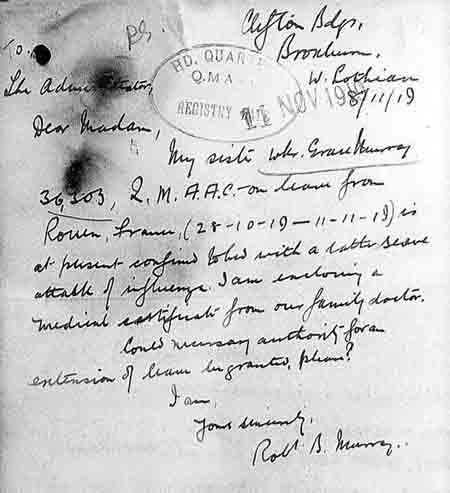 Clifton Bdgs,
Broxburn,
W. Lothian
8/11/19
To,
The Administrator,
HD. QUART
Q.M.A
REGISTRY
11 NOV 19
Dear Madam,
My sister Wkr. Grace Murray
36,303, Q.M.A.A.C. on leave from
Rouen, France, (28-10-19 — 11-11-19) is
at present confined to bed with a rather severe
attack of influenza. I am enclosing a
medical certificate from our family doctor.
Could necessary authority for an
extension of leave be granted, please?
I am,
Yours sincerely,
Robt B. Murray.